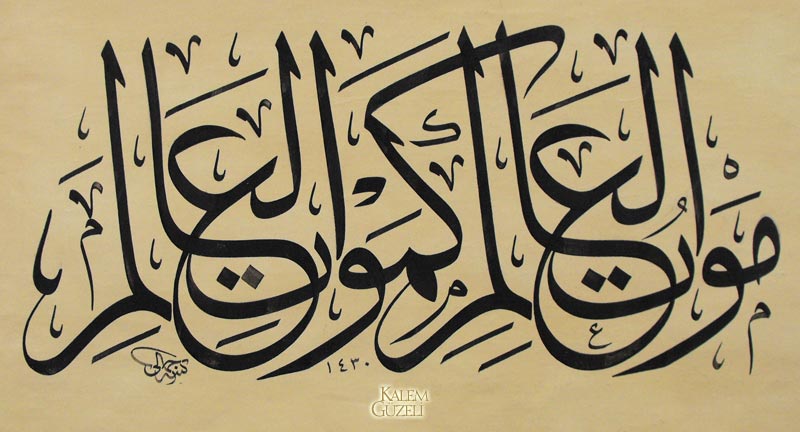 مَوْتُ الْعَالِمِ كَمَوْتِ الْعَالَمِ
١٤٣٠
KALEM
GÜZELİ